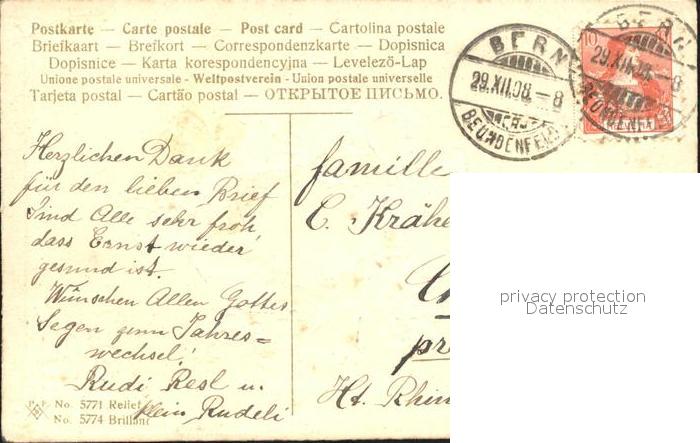 Postkarte — Carte postale — Post card — Cartolina postale
Briefkaart — Brefkort — Correspondenzkarte — Dopisnica
Dopisnice — Karta korespondencyjna — Levelező-Lap
Unione postale universale - Weltpostverein - Union postale universelle
Tarjeta postal — Cartão postal — ОТКРЫТОЕ ПИСЬМО.
BERN
29.XII.08. – 8
BEUNDENFELD
10
BERN
29.XII.08. – 8
BEUNDENFELD
HELVETIA
Herzlichen Dank
für den lieben Brief
Sind Alle sehr froh,
dass Ernst wieder
gesund ist.
Wünschen Allen Gottes
Segen zum Jahres=
wechsel!
Rudi Resl u.
klein Rudeli
famille
C. Krähe
pr
Ht. Rhin
privacy protection
Datenschutz
P. F. No. 5771 Relief
No. 5774 Brillant